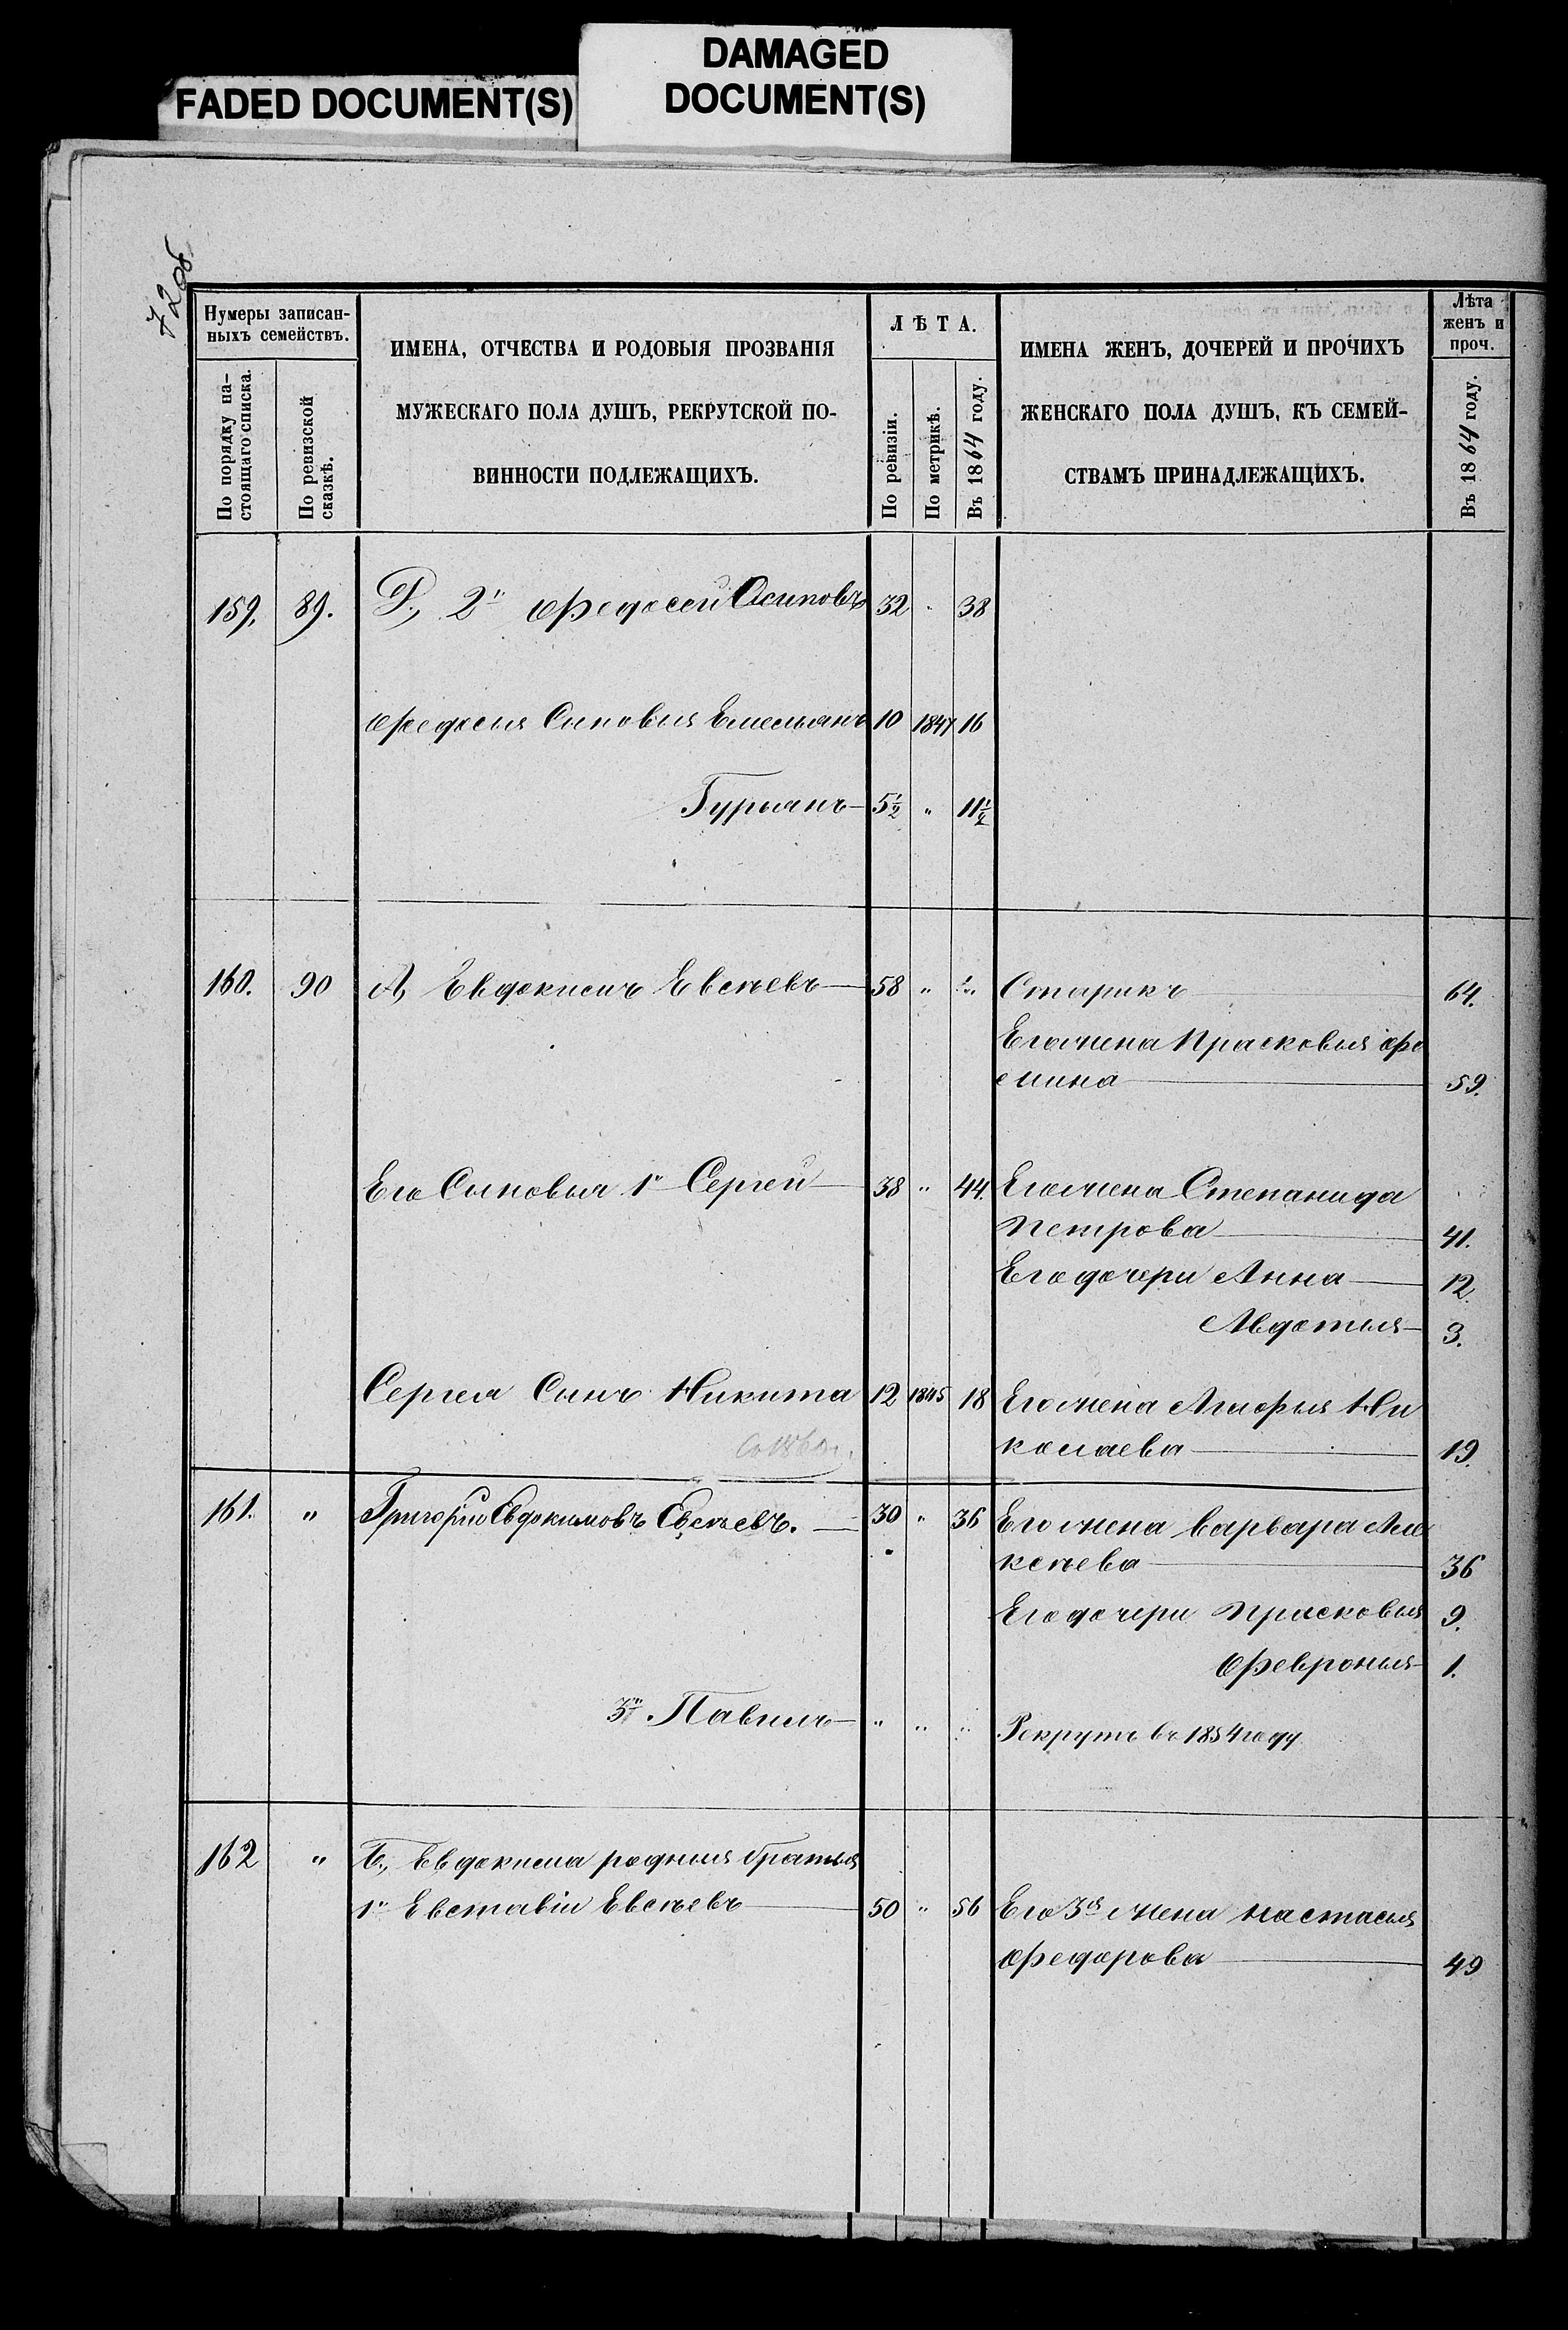 FADED DOCUMENT(S)
DAMAGED
DOCUMENT(S)
72об
Нумеры записан-
ныхъ семействъ.
По порядку на-
стоящаго списка.
По ревизской
сказкѣ.
ИМЕНА, ОТЧЕСТВА И РОДОВЫЯ ПРОЗВАНІЯ
МУЖЕСКАГО ПОЛА ДУШЪ, РЕКРУТСКОЙ ПО-
ВИННОСТИ ПОДЛЕЖАЩИХЪ.
ЛѢТА.
По ревизіи.
По метрикѣ.
Въ 1864 году.
ИМЕНА ЖЕНЪ, ДОЧЕРЕЙ И ПРОЧИХЪ
ЖЕНСКАГО ПОЛА ДУШЪ, КЪ СЕМЕЙ-
СТВАМЪ ПРИНАДЛЕЖАЩИХЪ.
Лѣта
женъ и
проч.
Въ 1864 году.
159. 89. 2й Федосей Осиповъ 32 " 38
Федосия Сыновья Емельянъ 10 1847 16
Гурьянъ 5½ " 11½
160. 90 А, Евдокимъ Евсѣевъ 58 " Старикъ 64.
Его жена Прасковья Фо
мина 59.
Его Сыновья 1й Сергей 38 " 44. Его жена Степанида
Петрова 41.
Его дочери Анна 12.
Авдотья 3.
Сергея Сынъ Никита 12 1845 18 Его жена Агафья Ни
колаева 19.
161. " Григорій Евдокимовъ Евсѣевъ. 30 " 36 Его жена Варвара Але
ксѣева 36
Его дочери Прасковья 9.
Февронья 1.
3й Павилъ " " " Рекрутъ въ 1854 году
162 " Б, Евдокима родныя братья
1й Евставій Евсѣевъ 50 " 56 Его 3я жена Настасья
Федорова 49